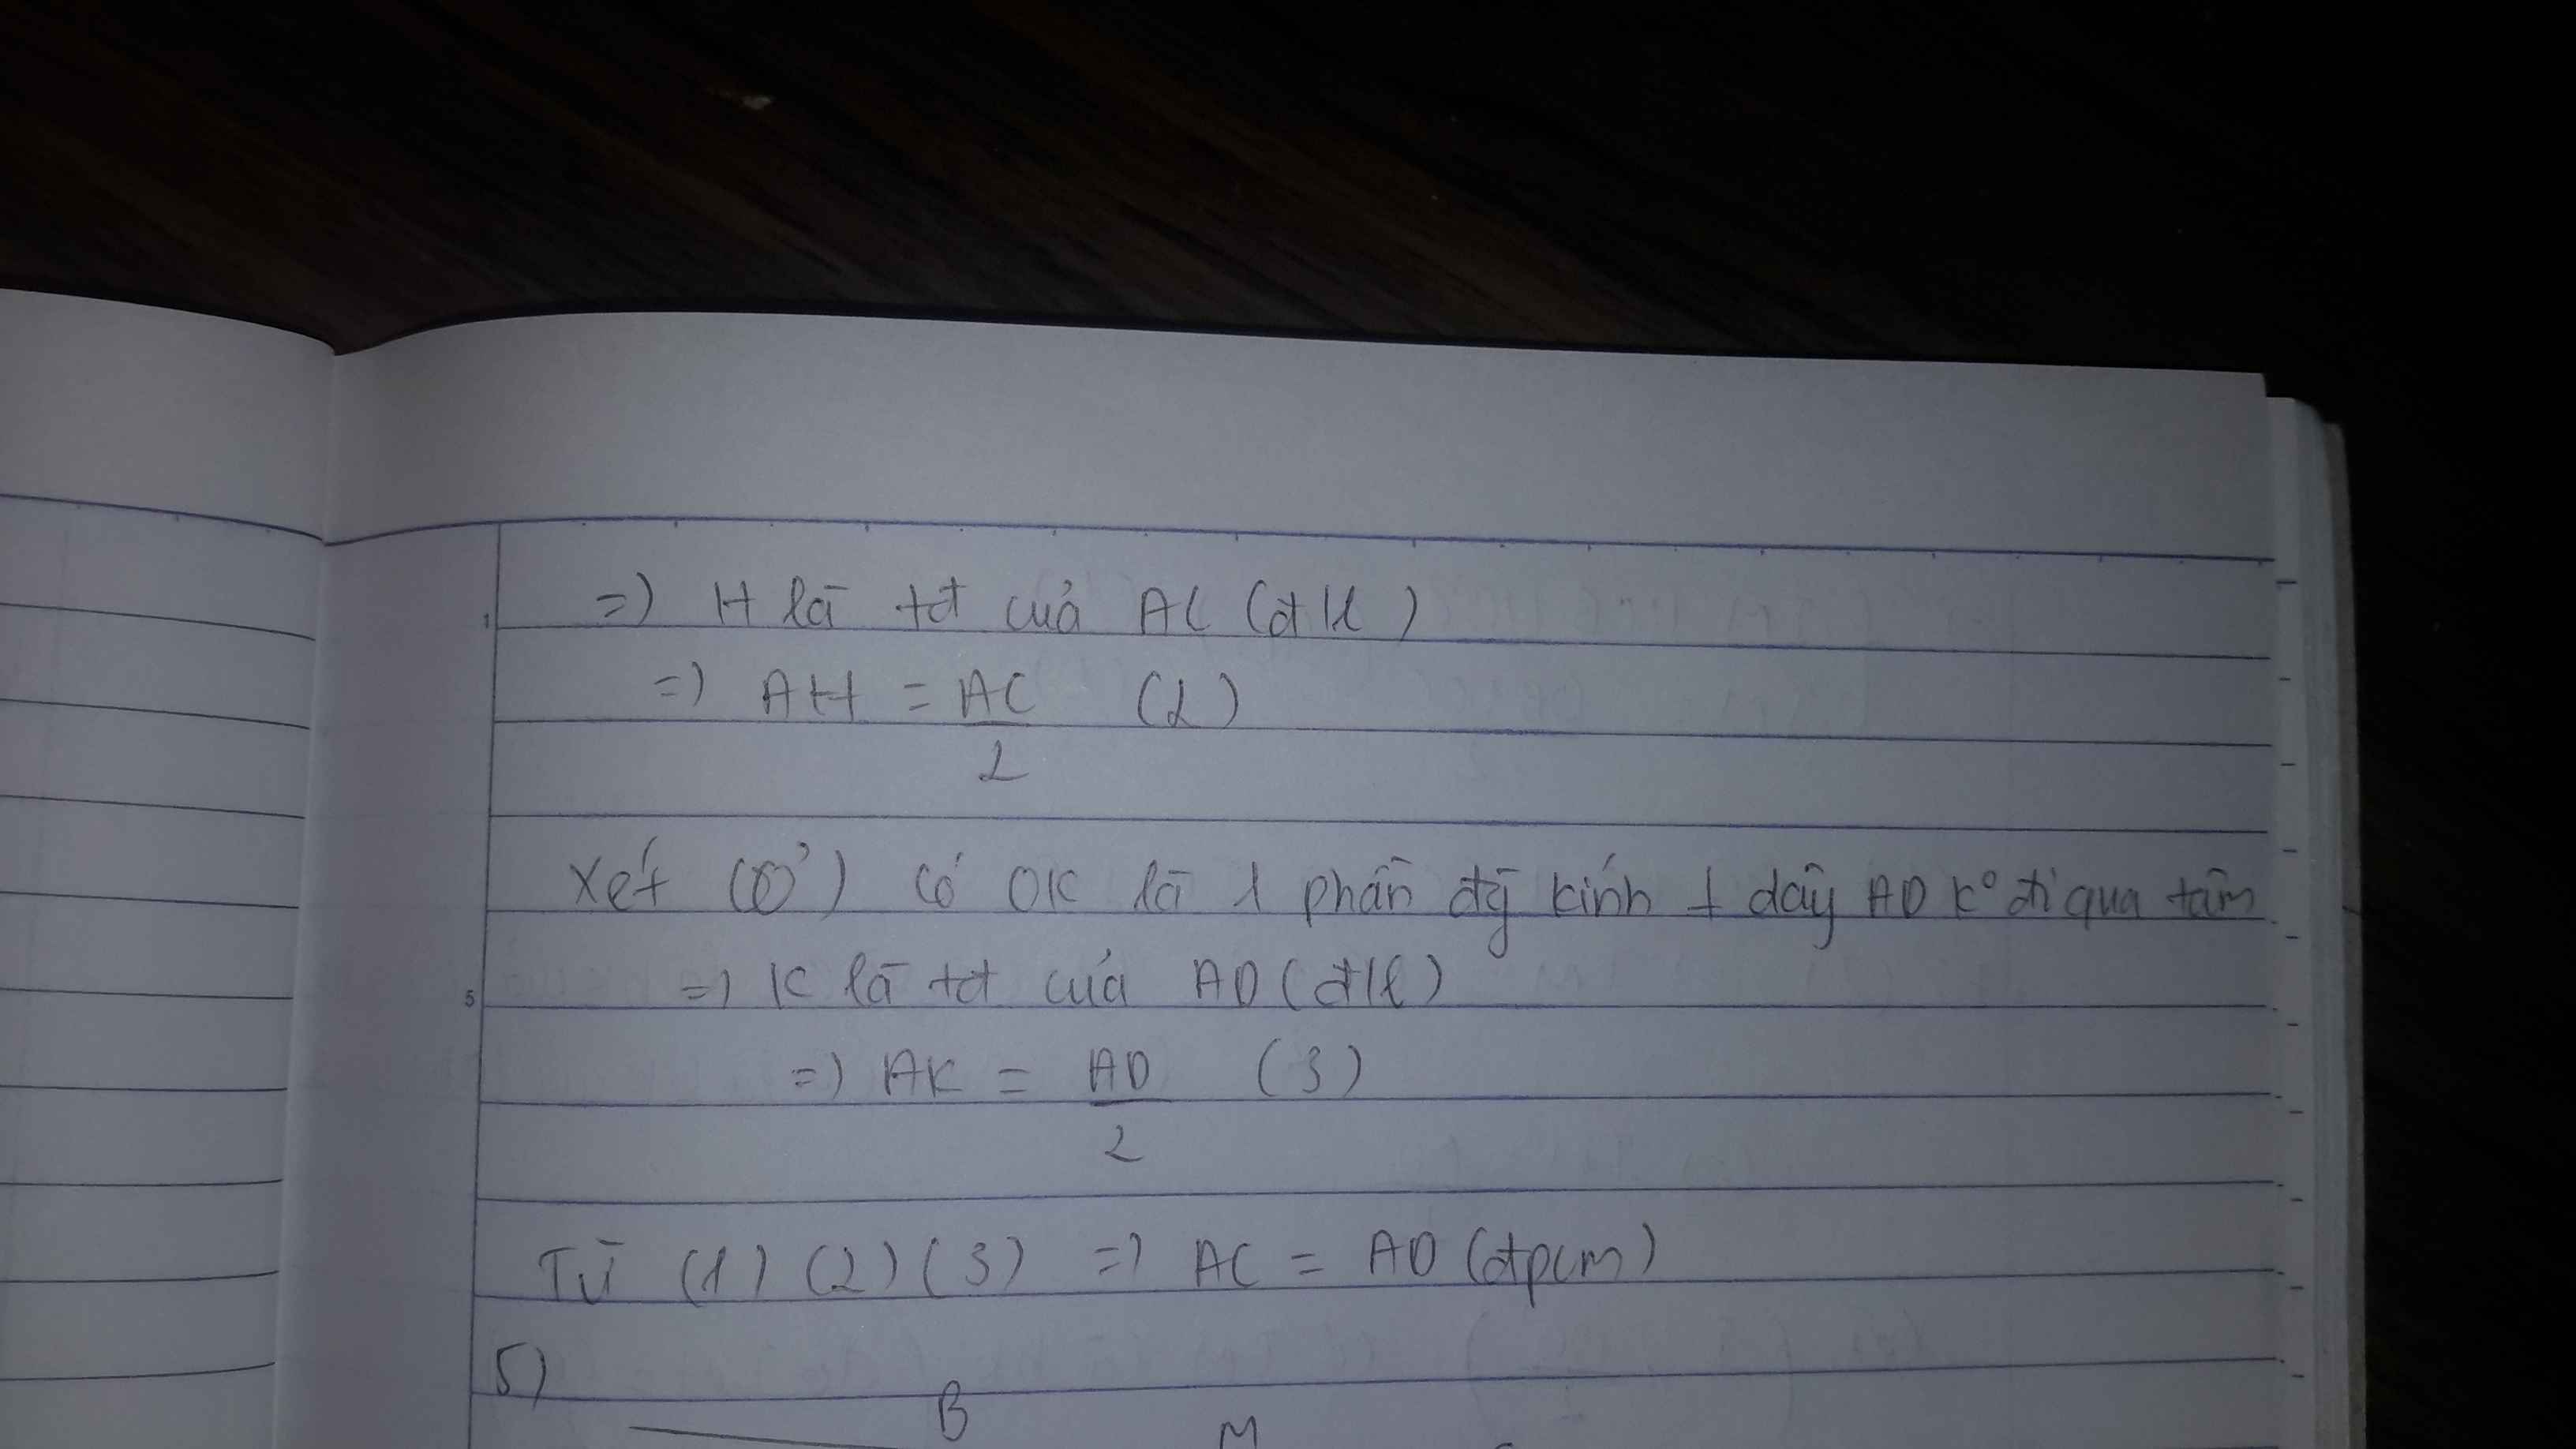 1
=) H là tđ cuả AC (đ/l)
=) AH = AC/2 (2)
Xét (O') có OK là 1 phần đg kính ⊥ dây AD k° đi qua tâm
5
=) K là tđ cuả AD (đ/l)
=) AK = AD/2 (3)
Từ (1) (2) (3) =) AC = AD (đpcm)
5)
B
M